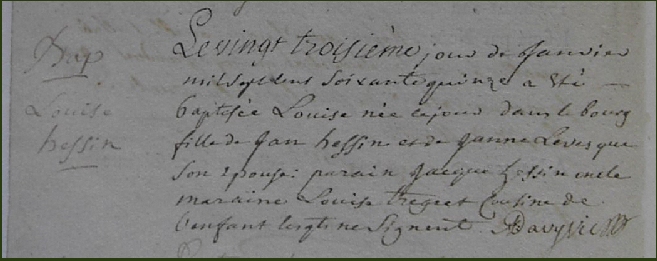 Bap
Louise
hessin
Le vingt troisième jour de Janvier
mil sept cens soixante quinze a été
baptisée Louise née ce jour dans le bourg
fille de Jan hessin et de Janne Levesque
son epouse: parain Jacque hessin oncle
maraine Louise cousine de
l'enfant lesqls ne signent. Davy